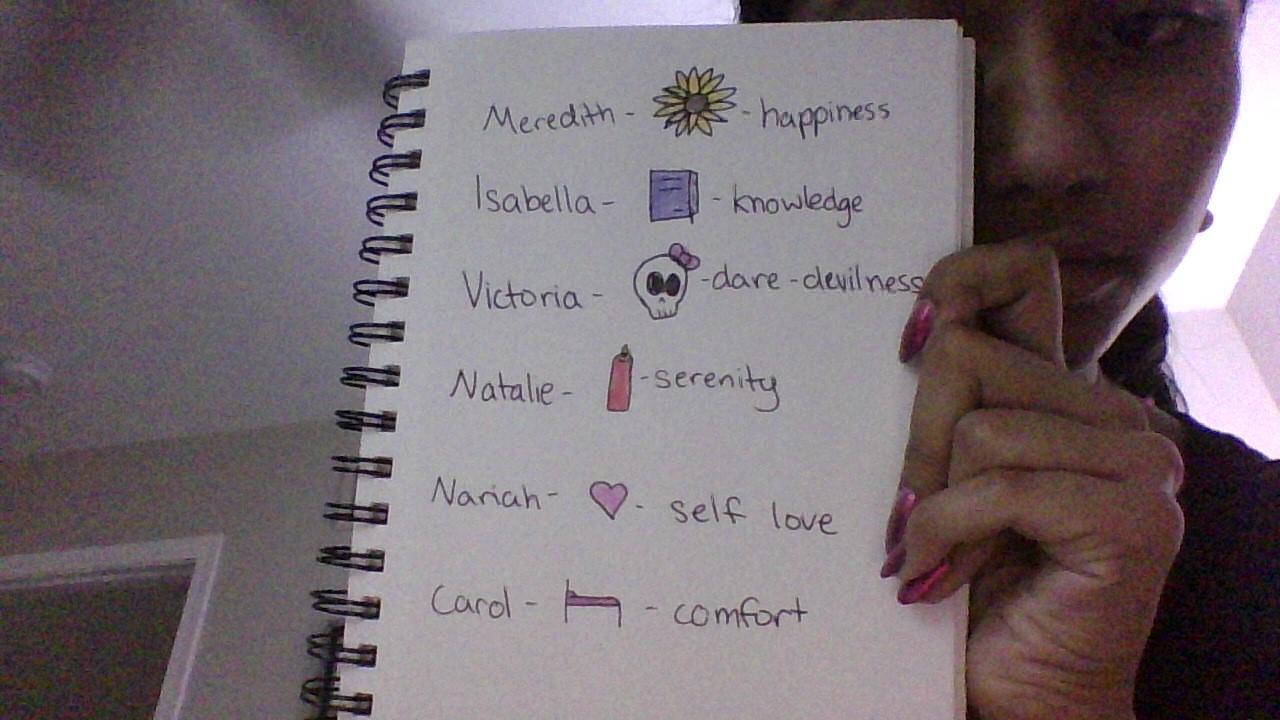 Meredith - - happiness
Isabella - - knowledge
Victoria - - dare - devilness
Natalie - - serenity
Nariah - - self love
Carol - - comfort